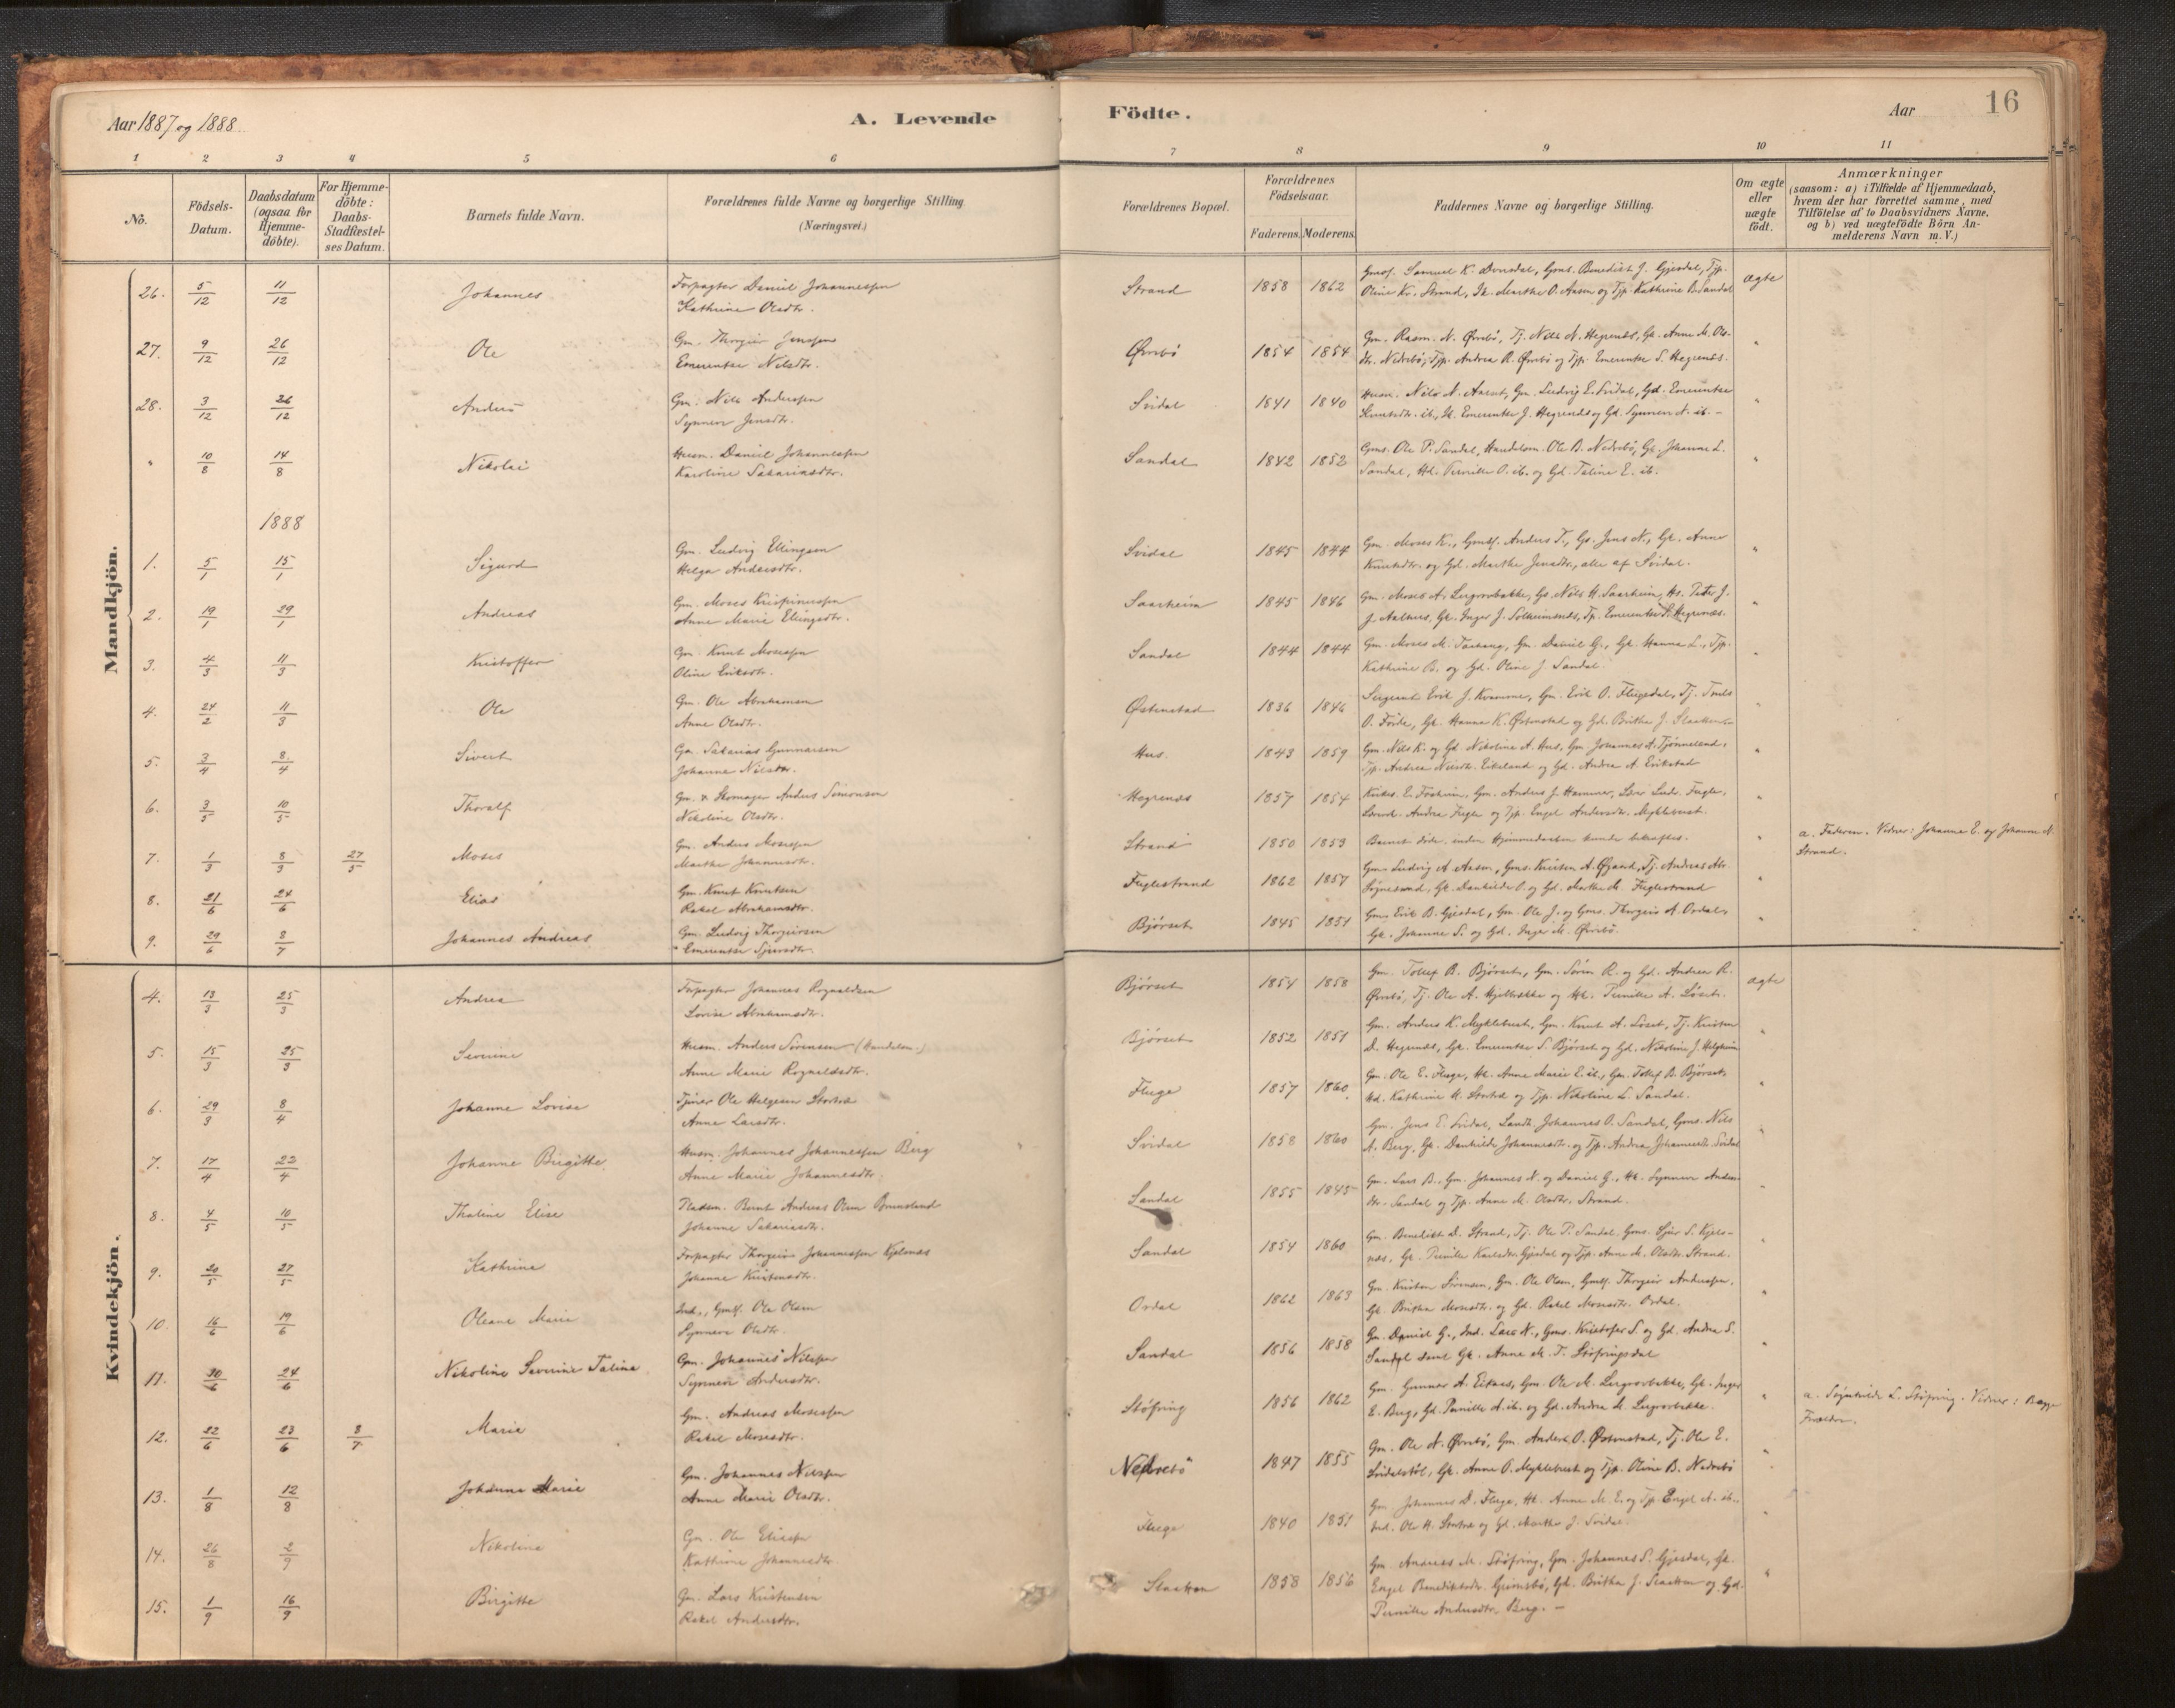 Aar 1887 og 1888.
A. Levende Födte.
Aar
16
1 2 3 4 5 6 7 8 9 10 11
No.
Födsels-Datum.
Daabsdatum (ogsaa for Hjemme-döbte).
For Hjemme-döbte: Daabs-Stadfæstel-ses Datum.
Barnets fulde Navn.
Forældrenes fulde Navne og borgerlige Stilling.
(Næringsvei.)
Forældrenes Bopæl.
Forældrenes Födselsaar.
Faderens. Moderens.
Faddernes Navne og borgerlige Stilling.
Om ægte eller uægte födt.
Anmærkninger
(saasom: a) i Tilfælde af Hjemmedaab,
hvem der har forrettet samme, med
Tilföielse af to Daabsvidners Navne,
og b) ved uægtefödte Börn An-
melderens Navn m. V.)
Mandkjön.
26. 5/12 11/12 Johannes Forpagter Daniel Johannessen
Kathrine Olsdtr. Strand 1858 1862 Benedikt J. Gjesdal, Tjp.
Oline Kr. Strand, Marthe O. Aasen og Tjp. Kathrine B. Sandal ægte
27. 9/12 26/12 Ole Gm. Thorgeir Jenssen
Emerentse Nilsdtr. Øvrebö 1854 1854 Gm. Rasm. N. Øvrebö, Tj. Nils N. Hegrenæs, Gk. Anne M. Ols-
dtr. Nedrebö, Tjp. Andrea R. Øvrebö og Tjp. Emerentse S. Hegrenæs. "
28. 3/12 26/12 Anders Gm. Nils Anderssen
Synneve Jensdtr. Svidal 1841 1840 Husm. Nils N. Aaset, Gm. Ludvig E. Svidal, Gd. Emerentse
Knutsdtr. ib., Emerentse J. Hegrenæs og Gd. Synneve A. ib. - "
" 10/8 14/8 Nikolai Husm. Daniel Johannessen
Karoline Sakariasdtr. Sandal 1842 1852 Gms. Ole P. Sandal, Handelsm. Ole B. Nedrebö, Gk. Johanne L.
Sandal, Hk. Pernille O. ib. og Gd. Taline E. ib. "
1888
1. 5/1 15/1 Sigurd Gm. Ludvig Ellingsen
Helga Andersdtr. Svidal 1845 1844 Gm. Moses K., Anders T., Gs. Jens N., Gk. Anne
Knutsdtr. og Gd. Marthe Jensdtr., alle af Svidal. "
2. 19/1 29/1 Andreas Gm. Moses
Anne Marie Ellingsdtr. Saarheim 1845 1846 Gm. Moses A. Gs. Nils M. Saarheim, Peter J.
J. Aalhus, Gk. Inger J. Solheimsnes, Tp. Emerentse S. Hegrenæs. "
3. 4/3 11/3 Kristoffer Gm. Knut Mosessen
Oline Eriksdtr. Sandal 1844 1844 Gm. Moses M. Gm. Daniel G., Gk. Hanna L., Tjp.
Kathrine B. og Gd. Oline J. Sandal. "
4. 24/2 11/3 Ole Gm. Ole Abrahamsen
Anne Olsdtr. Østenstad 1836 1846 Sergeant Erik J. Kvamme, Gm. Erik O. Flugedal, Tj. Truls
O. Förde, Gk. Hanna K. Østenstad og Gd. Brithe J. Slaatten. "
5. 3/4 8/4 Sivert Gm. Sakarias Gunnarsen
Johanne Nilsdtr. Hus. 1843 1859 Gm. Nils K. og Gd. Nikoline A. Hus, Gm. Johannes A. Tjönneland,
Tjp. Andrea Nilsdtr. Eikeland og Gd. Andrea A. Erikstad "
6. 3/5 10/5 Thoralf Gm. & Skomager Anders Simonsen
Nikoline Olsdtr. Hegrenæs 1857 1854 Kirkes. E. Gm. Anders J. Hammer, Lærer Ludv. Fugle,
Andrea Fugle og Tjp. Engel Andersdtr. Myklebust. "
7. 1/3 8/3 27/5 Moses Gm. Anders Mosessen
Marthe Johannesdtr. Strand 1850 1853 Barnet döde, inden Hjemmedaaben kunde bekræftes. " a. Faderen. Vidner: Johanne E. og Johanne N.
Strand.
8. 21/6 24/6 Elias Gm. Knut Knutsen
Rakel Abrahamsdtr. Fuglestrand 1862 1857 Gm. Ludvig A. Aasen, Gms. Kristen A. Tj. Andreas Abr.
Sognesand, Gk. Dankilde O. og Gd. Marthe M. Fuglestrand "
9. 29/6 8/7 Johannes Andreas Gm. Ludvig Thorgeirsen
Emerentse Sjursdtr. Bjørset 1845 1851 Gm. Erik B. Gjesdal, Gm. Ole J. og Gms. Thorgeir A. Ordal,
Gk. Johanne S. og Gd. Inger M. Øvrebö. "
Kvindekjön.
4. 13/3 25/3 Andrea Forpagter Johannes Rognaldsen
Lovise Abrahamsdtr. Bjørset 1854 1858 Gm. Tollef B. Bjørset, Gm. Sörin R. og Gd. Andrea R.
Øvrebö, Tj. Ole A. og Hk. Pernille A. Löset. ægte
5. 15/3 25/3 Severine Husm. Anders Sörensen (Handelsm.)
Anne Marie Rognaldsdtr. Bjørset 1852 1851 Gm. Anders K. Myklebust, Gm. Knut A. Löset, Tj. Kristen
D. Hegrenæs, Gk. Emerentse S. Bjørset og Gd. Nikoline J. Helgheim "
6. 29/3 8/4 Johanne Lovise Tjener Ole Helgesen Stortræ
Anne Larsdtr. Fluge 1857 1860 Gm. Ole E. Fluge, Hk. Anne Marie E. ib., Gm. Tollef B. Bjørset,
Hd. Kathrine H. Stortræ og Tjp. Nikoline L. Sandal. "
7. 17/4 22/4 Johanne Birgitte Husm. Johannes Johannessen Berg
Anne Marie Johannesdtr. Svidal 1858 1860 Gm. Jens E. Svidal, Landh. Johannes O. Sandal, Gms. Nils
A. Berg, Gk. Dankilde Johannesdtr. og Tjp. Andrea Johannesdtr. Svidal
8. 4/5 10/5 Thaline Elise Pladsm. Bernt Andreas Olsen
Johanne Sakariasdtr. Sandal 1855 1845 Gm. Lars B., Gm. Johannes N. og Daniel G., Hk. Synneve Anders-
dtr. Sandal og Tjp. Anne M. Olsdtr. Strand. "
9. 20/5 27/5 Kathrine Forpagter Thorgeir Johannessen Kjelsnæs
Johanne Kristensdtr. Sandal 1854 1860 Gm. Benedikt D. Strand, Tj. Ole P. Sandal, Gms. Sjur S. Kjels-
næs, Gk. Pernille Karlsdtr. Gjesdal og Tjp. Anne M. Olsdtr. Strand.
10. 16/6 19/6 Oleane Marie Ind., Ole Olsen
Synneve Olsdtr. Ordal 1862 1863 Gm. Kristen Sörensen, Gm. Ole Olsen, Thorgeir Anderssen,
Gk. Brithe Mosesdtr. og Gd. Rakel Mosesdtr. Ordal. "
11. 10/6 24/6 Nikoline Severine Taline Gm. Johannes Nilssen
Synneve Andersdtr. Sandal 1856 1858 Gm. Daniel G., Ind. Lars N., Gms. Kristofer S. og Gd. Andrea S.
Sandal samt Gk. Anne M. T. Stöfringsdal "
12. 22/6 23/6 8/7 Marie Gm. Andreas Mosessen
Rakel Mosesdtr. Stöfring 1856 1862 Gm. Gunnar A. Eiknes, Gm. Ole M. Gk. Inger
E. Berg, Gd. Pernille A. ib. og Gd. Andrea M. " a. L. Stöfring. Vidner: Begge
Forældre.
13. 1/8 12/8 Johanna Marie Gm. Johannes Nilssen
Anne Marie Olsdtr. Nedrebö 1847 1855 Gm. Ole N. Øvrebö, Gm. Anders O. Østenstad, Tj. Ole E.
Svidalstöl, Gk. Anne O. Myklebust og Tjp. Oline B. Nedrebö "
14. 26/8 2/9 Nikoline Gm. Ole Eliassen
Kathrine Johannesdtr. Fluge 1840 1851 Gm. Johannes D. Fluge, Hk. Anne M. E. og Tjp. Engel A. ib.,
Ind. Ole H. Stortræ og Gd. Marthe J. Svidal. "
15. 1/9 16/9 Birgitte Gm. Lars Kristensen
Rakel Andersdtr. Slaatten 1858 1856 Gm. Andreas M. Stöfring, Gm. Johannes S. Gjesdal, Gk.
Engel Benediktsdtr. Grimsbö, Gk. Brithe J. Slaatten og Gd.
Pernille Andersdtr. Berg. - "